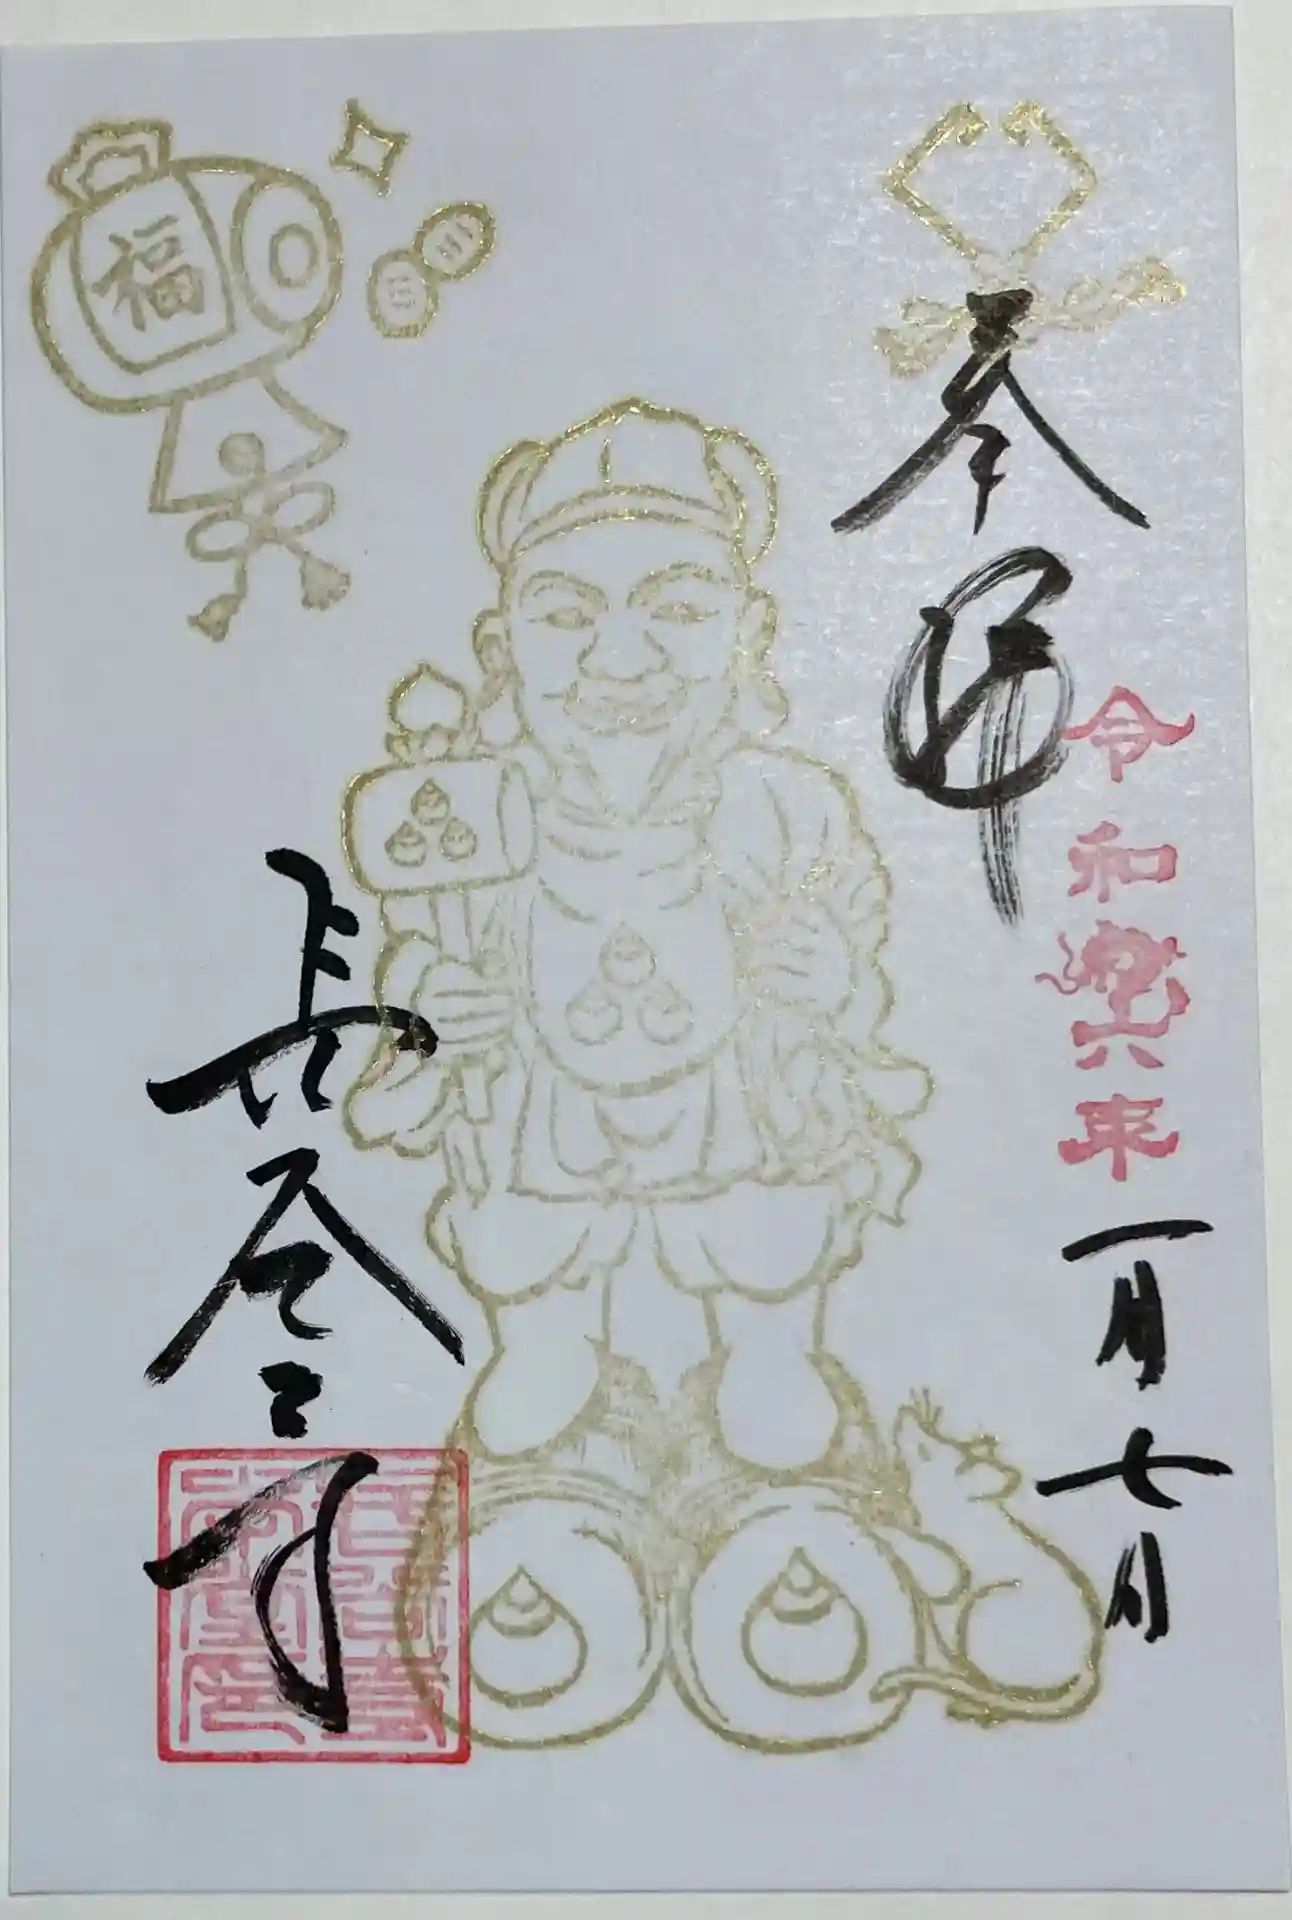 奉拝
令和六年
一月七日
長谷寺
福